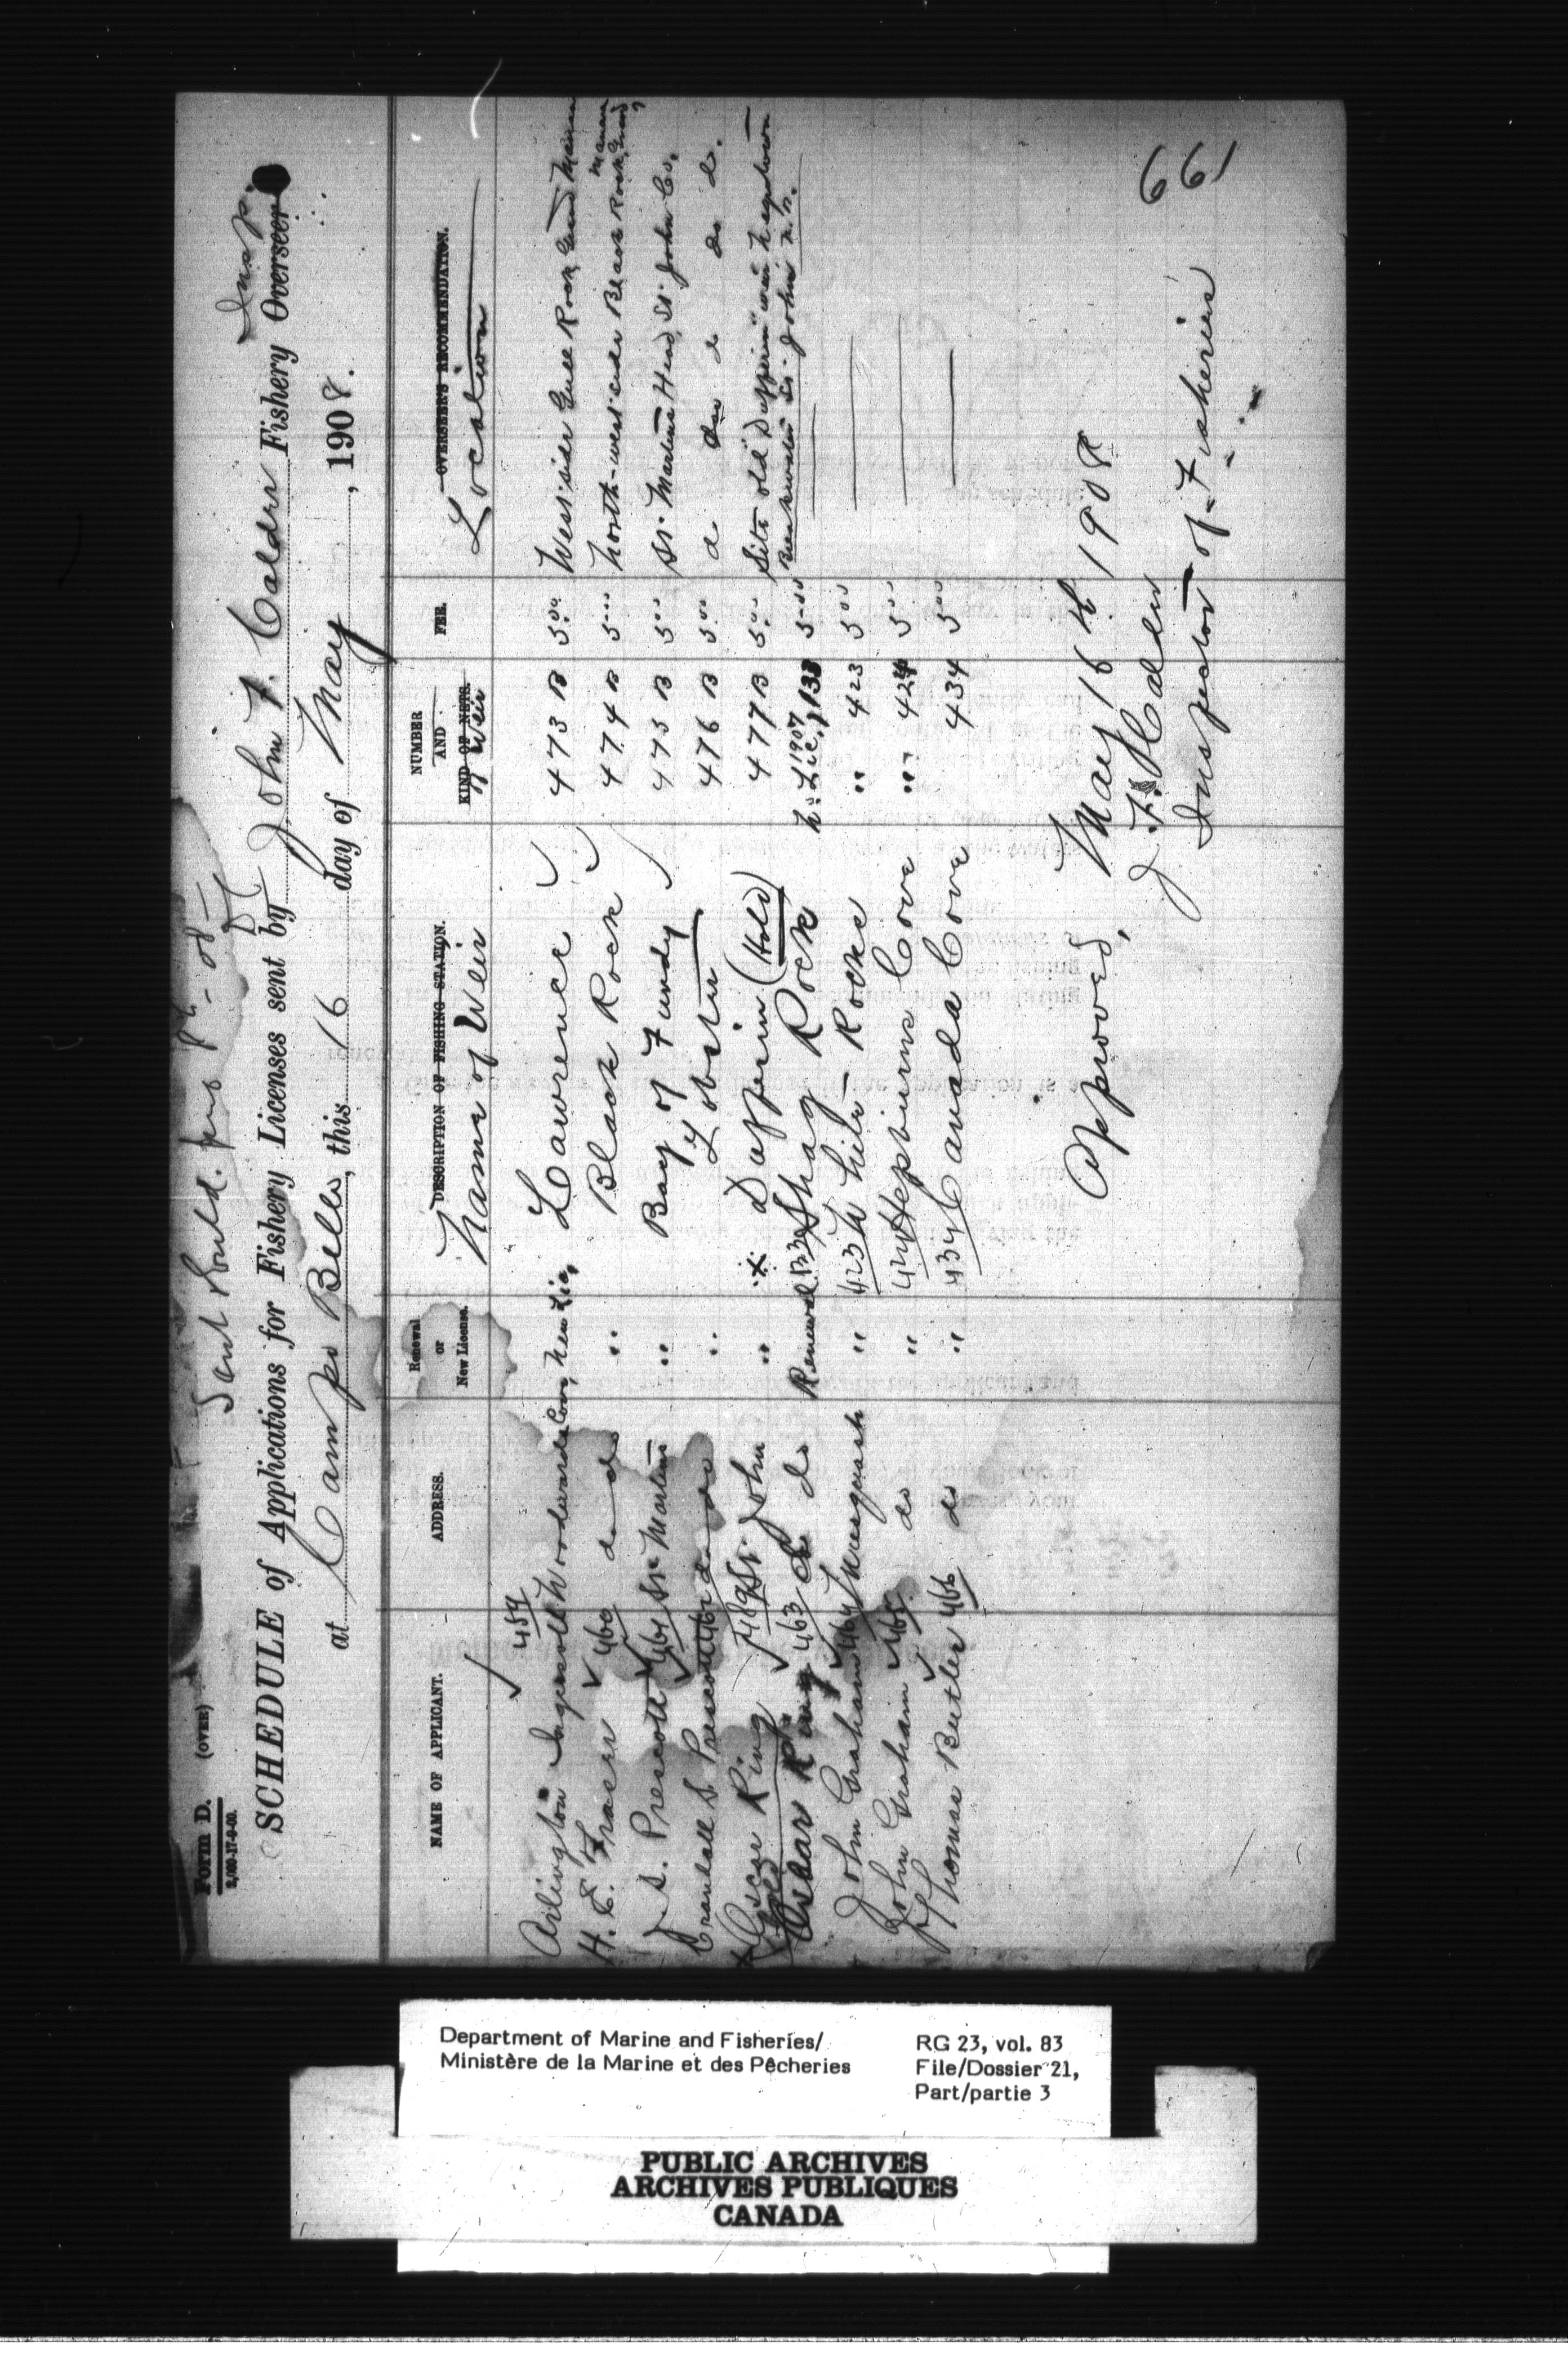 Form D. (OVER)
2,000-17-9-00.
SCHEDULE of Applications for Fishery Licenses sent by John F. Calder Fishery Overseer Insp.
at Campo Bello, this 16 day of May, 1908.
NAME OF APPLICANT. ADDRESS. Renewal or New License. DESCRIPTION OF FISHING STATION. NUMBER AND KIND OF NETS. FEE. OVERSEER'S RECOMMENDATION.
Name of Weir of Weir Location
459
Arlington Ingersoll Woodwards Cove, New Lic. Lawrence 473 B 5.00 West side Gull Rock, Grand Manan
H. E. Fraser 460 do do " Black Rock 474 B 5.00 North-west side Black Rock, Grand Manan
J. S. Prescott 461 St. Martins " Bay of Fundy 475 B 5.00 St. Martins Head, St. John Co.
Crandall S. Prescott 462 do do " Lobster 476 B 5.00 do do do do do.
Oscar Ring 489 St. John " Dufferin (Hold) 477 B 5.00 Site old "Dufferin" weir Negrotown
Breakwater St. John N.B.
Oscar Ring 463 do do Renewal 133 Shag Rock No. Lic. 1907, 133 5.00
John Graham 464 Musquash " 423 White Rocks " 423 5.00
John Graham 465 do " 424 Hepburns Cove " 424 5.00
Thomas Butler 466 do " 434 Canada Cove 434 5.00
Approved, May 16th 1908
J. F. Calder
Inspector of Fisheries
661
Department of Marine and Fisheries/
Ministère de la Marine et des Pêcheries
RG 23, vol. 83
File/Dossier 21,
Part/partie 3
PUBLIC ARCHIVES
ARCHIVES PUBLIQUES
CANADA